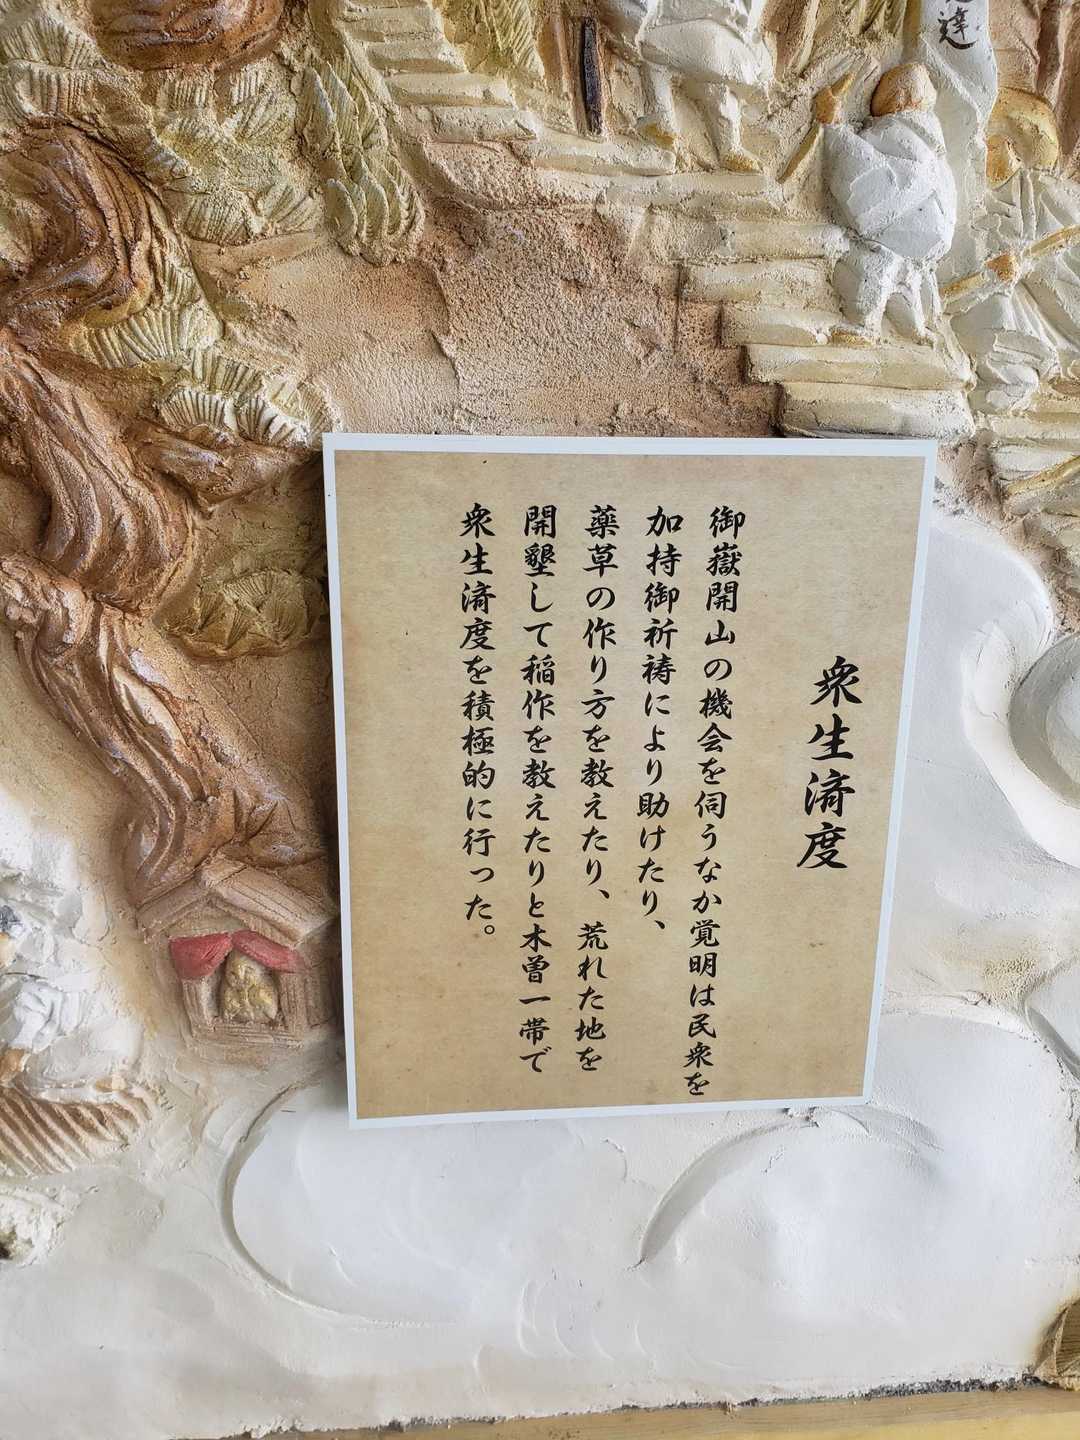 衆生済度
御嶽開山の機会を伺うなか覚明は民衆を
加持御祈祷により助けたり、
薬草の作り方を教えたり、荒れた地を
開墾して稲作を教えたりと木曽一帯で
衆生済度を積極的に行った。
達